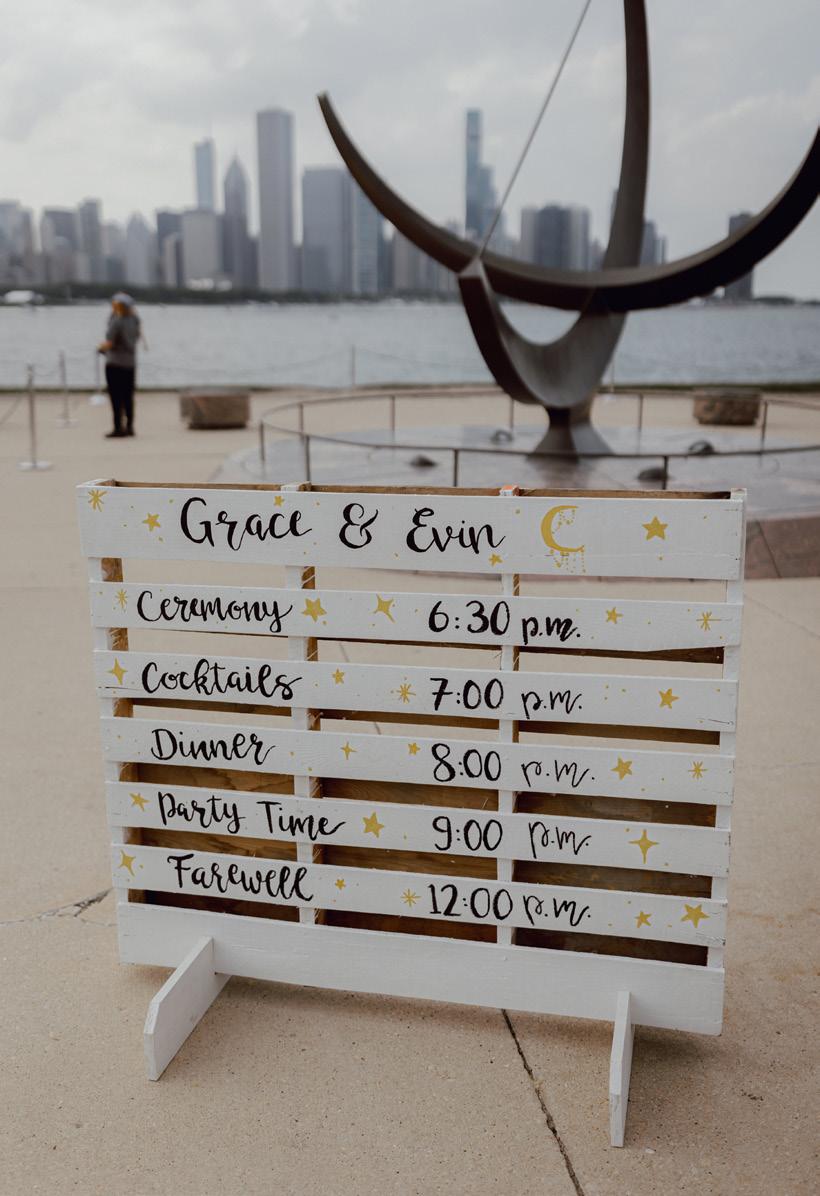 Grace & Evin
Ceremony 6:30 p.m.
Cocktails 7:00 p.m.
Dinner 8:00 p.m.
Party Time 9:00 p.m.
Farewell 12:00 p.m.